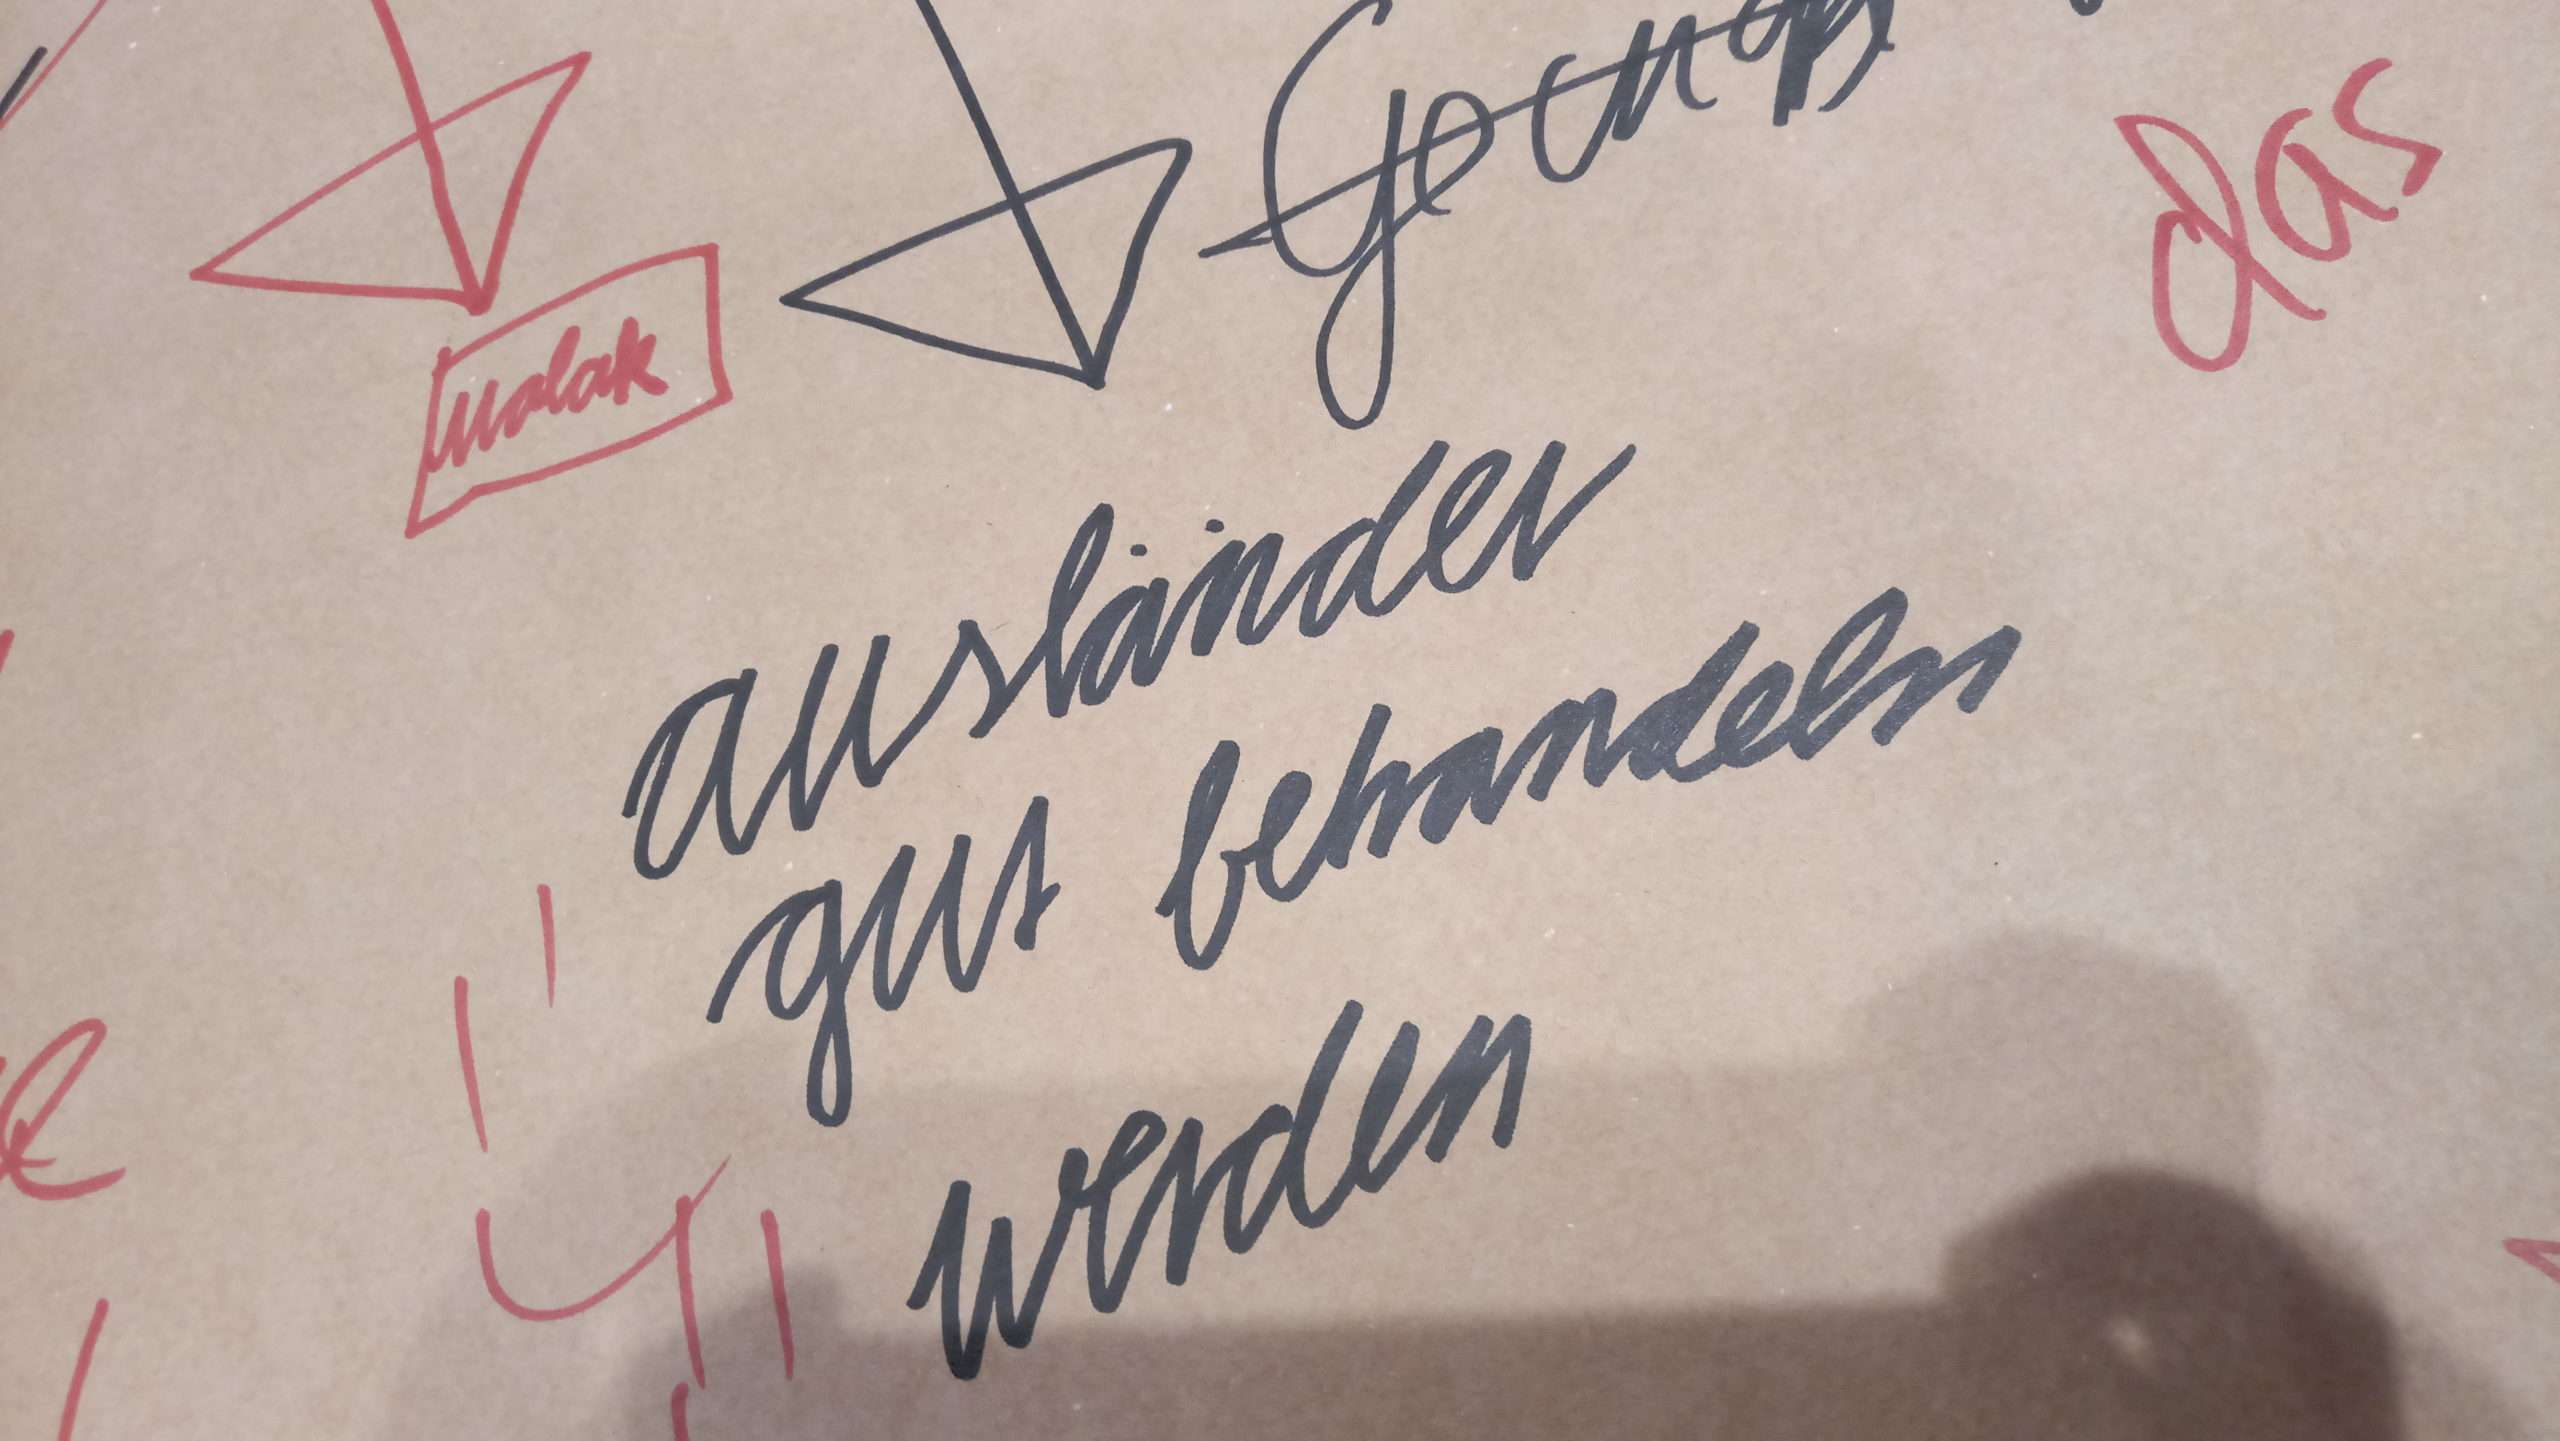 das
malak
ausländer
gut behandeln
werden